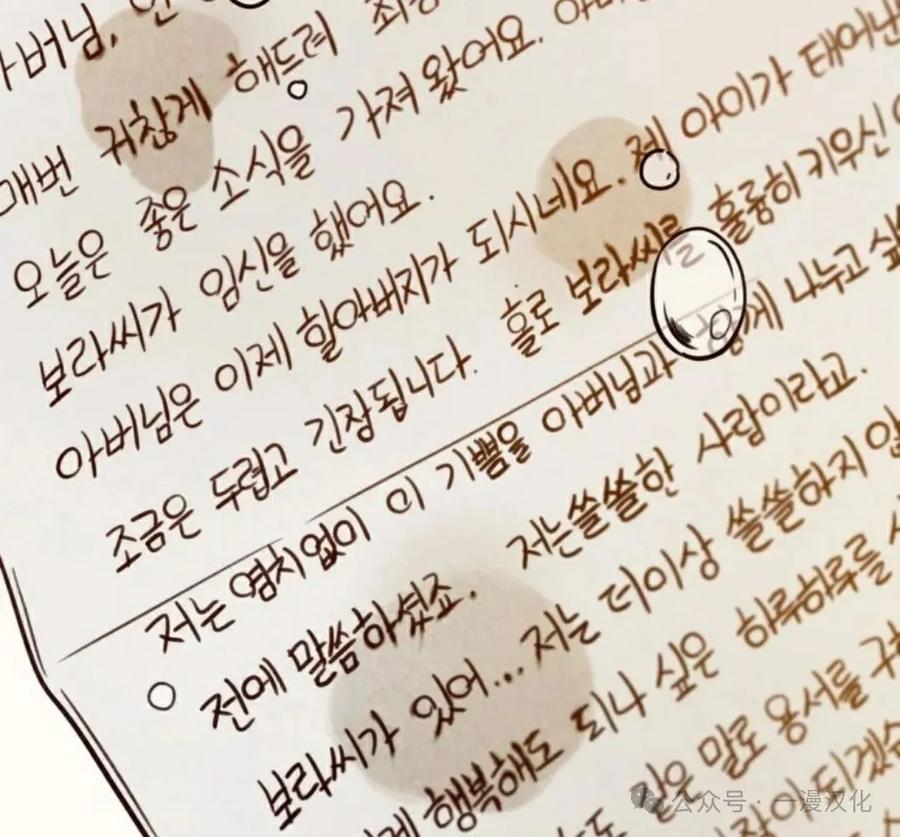 아버님, 안
매번 귀찮게 해드려 죄송
오늘은 좋은 소식을 가져 왔어요. 아버
보라씨가 임신을 했어요.
아버님은 이제 할아버지가 되시네요. 제 아이가 태어난
조금은 두렵고 긴장됩니다. 홀로 보라씨를 훌륭히 키우신
저는 염치없이 이 기쁨을 아버님과 나누고 싶
전에 말씀하셨죠. 저는쓸쓸한 사람이라고.
보라씨가 있어... 저는 더이상 쓸쓸하지않
행복해도 되나 싶은 하루하루를
같은 말로 용서를 구
이 되겠습
公众号 · 一漫汉化